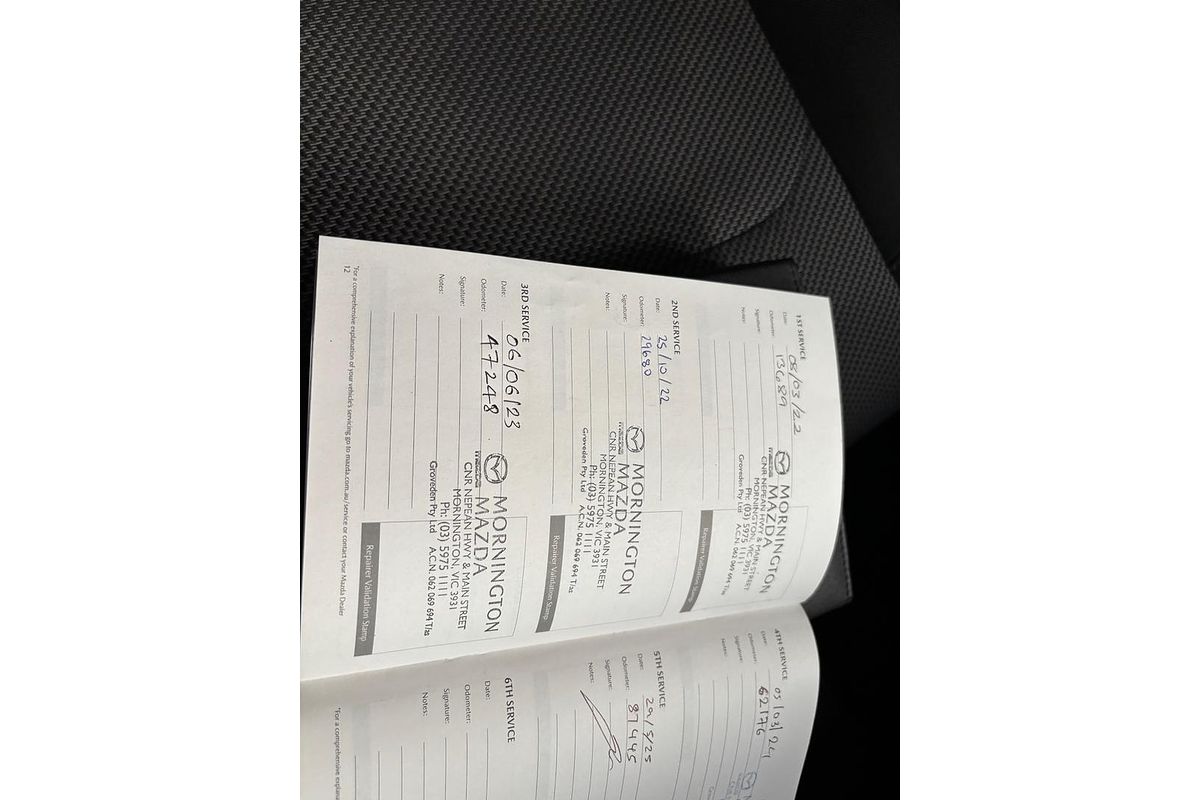 1ST SERVICE
Date: 08/03/22
Odometer: 13689
Signature:
Notes:
MORNINGTON
mazda MAZDA
CNR NEPEAN HWY & MAIN STREET
MORNINGTON, VIC 3931
Ph: (03) 5975 1111
Groveden Pty Ltd A.C.N. 062 069 694 T/as
Repairer Validation Stamp
2ND SERVICE
Date: 25/10/22
Odometer: 29680
Signature:
Notes:
MORNINGTON
mazda MAZDA
CNR NEPEAN HWY & MAIN STREET
MORNINGTON, VIC 3931
Ph: (03) 5975 1111
Groveden Pty Ltd A.C.N. 062 069 694 T/as
Repairer Validation Stamp
3RD SERVICE
Date: 06/06/23
Odometer: 47248
Signature:
Notes:
MORNINGTON
mazda MAZDA
CNR NEPEAN HWY & MAIN STREET
MORNINGTON, VIC 3931
Ph: (03) 5975 1111
Groveden Pty Ltd A.C.N. 062 069 694 T/as
Repairer Validation Stamp
*For a comprehensive explanation of your vehicle's servicing go to mazda.com.au/service or contact your Mazda Dealer
12
4TH SERVICE
Date: 05/03/24
Odometer: 62176
Signature:
Notes:
5TH SERVICE
Date: 29/5/25
Odometer: 87445
Signature:
Notes:
6TH SERVICE
Date:
Odometer:
Signature:
Notes:
*For a comprehensive